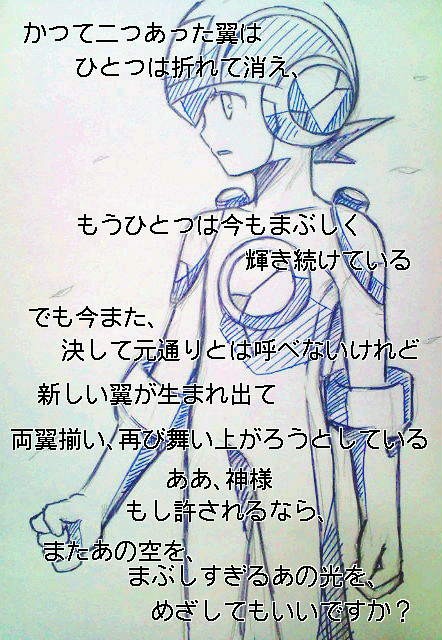 かつて二つあった翼は
ひとつは折れて消え、
もうひとつは今もまぶしく
輝き続けている
でも今また、
決して元通りとは呼べないけれど
新しい翼が生まれ出て
両翼揃い、再び舞い上がろうとしている
ああ、神様
もし許されるなら、
またあの空を、
まぶしすぎるあの光を、
めざしてもいいですか？